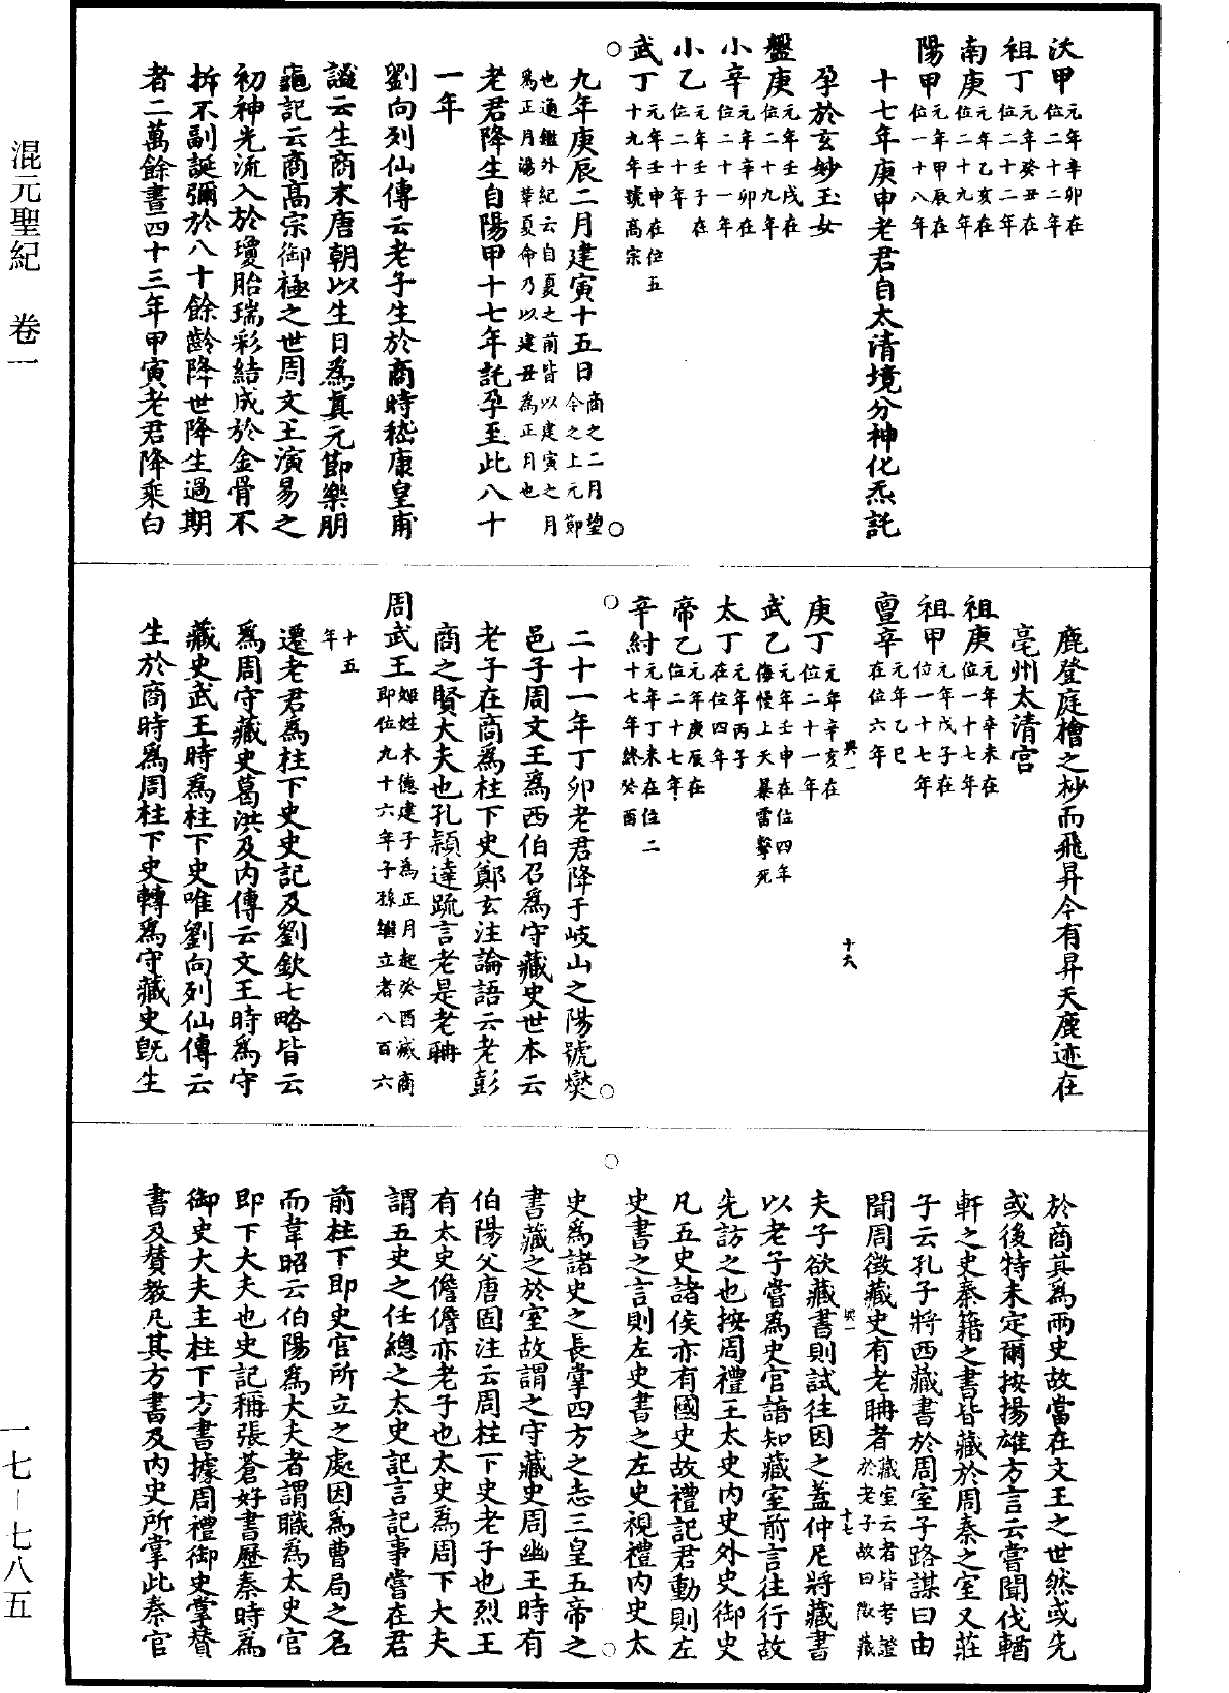 混元聖紀　卷一
沃甲元年辛卯在位二十二年
祖丁元年癸丑在位二十二年
南庚元年乙亥在位二十九年
陽甲元年甲辰在位一十八年
十七年庚申老君自太清境分神化炁託
孕於玄妙玉女
盤庚元年壬戌在位二十九年
小辛元年辛卯在位二十一年
小乙元年壬子在位二十年
武丁元年壬申在位五十九年號高宗
九年庚辰二月建寅十五日商之二月望今之上元節
也通鑑外紀云自夏之前皆以建寅之月為正月湯革夏命乃以建丑為正月也
老君降生自陽甲十七年託孕至此八十
一年
劉向列仙傳云老子生於商時嵇康皇甫
謐云生商末唐朝以生日為真元節樂朋
龜記云商高宗御極之世周文王演易之
初神光流入於瓊胎瑞彩結成於金骨不
拆不副誕彌於八十餘齡降世降生過期
者二萬餘晝四十三年甲寅老君降乘白
鹿登庭檜之杪而飛昇今有昇天鹿迹在
亳州太清宮
祖庚元年辛未在位一十七年
祖甲元年戊子在位一十七年
亶辛元年乙巳在位六年
興一
十六
庚丁元年辛亥在位二十一年
武乙元年壬申在位四年侮慢上天暴雷擊死
太丁元年丙子在位四年
帝乙元年庚辰在位二十七年
辛紂元年丁未在位二十七年終癸酉
二十一年丁卯老君降于岐山之陽號燮
邑子周文王為西伯召為守藏史世本云
老子在商為柱下史鄭玄注論語云老彭
商之賢大夫也孔穎達疏言老是老聃
周武王姬姓木德建子為正月起癸酉滅商即位九十六年子孫繼立者八百六
十五年
遷老君為柱下史史記及劉歆七略皆云
為周守藏史葛洪及內傳云文王時為守
藏史武王時為柱下史唯劉向列仙傳云
生於商時為周柱下史轉為守藏史既生
於商其為兩史故當在文王之世然或先
或後特未定爾按揚雄方言云嘗聞伐輶
軒之史秦籍之書皆藏於周秦之室又莊
子云孔子將西藏書於周室子路謀曰由
聞周徵藏史有老聃者藏室云者皆考證於老子故曰徵藏
興一
十七
夫子欲藏書則試往因之蓋仲尼將藏書
以老子嘗為史官諳知藏室前言往行故
先訪之也按周禮王太史內史外史御史
凡五史諸侯亦有國史故禮記君動則左
史書之言則左史書之左史視禮內史太
史為諸史之長掌四方之志三皇五帝之
書藏之於室故謂之守藏史周幽王時有
伯陽父唐固注云周柱下史老子也烈王
有太史儋儋亦老子也太史為周下大夫
謂五史之任總之太史記言記事嘗在君
前柱下即史官所立之處因為曹局之名
而韋昭云伯陽為大夫者謂職為太史官
即下大夫也史記稱張蒼好書歷秦時為
御史大夫主柱下方書據周禮御史掌贊
書及贊教凡其方書及內史所掌此秦官
一七－七八五